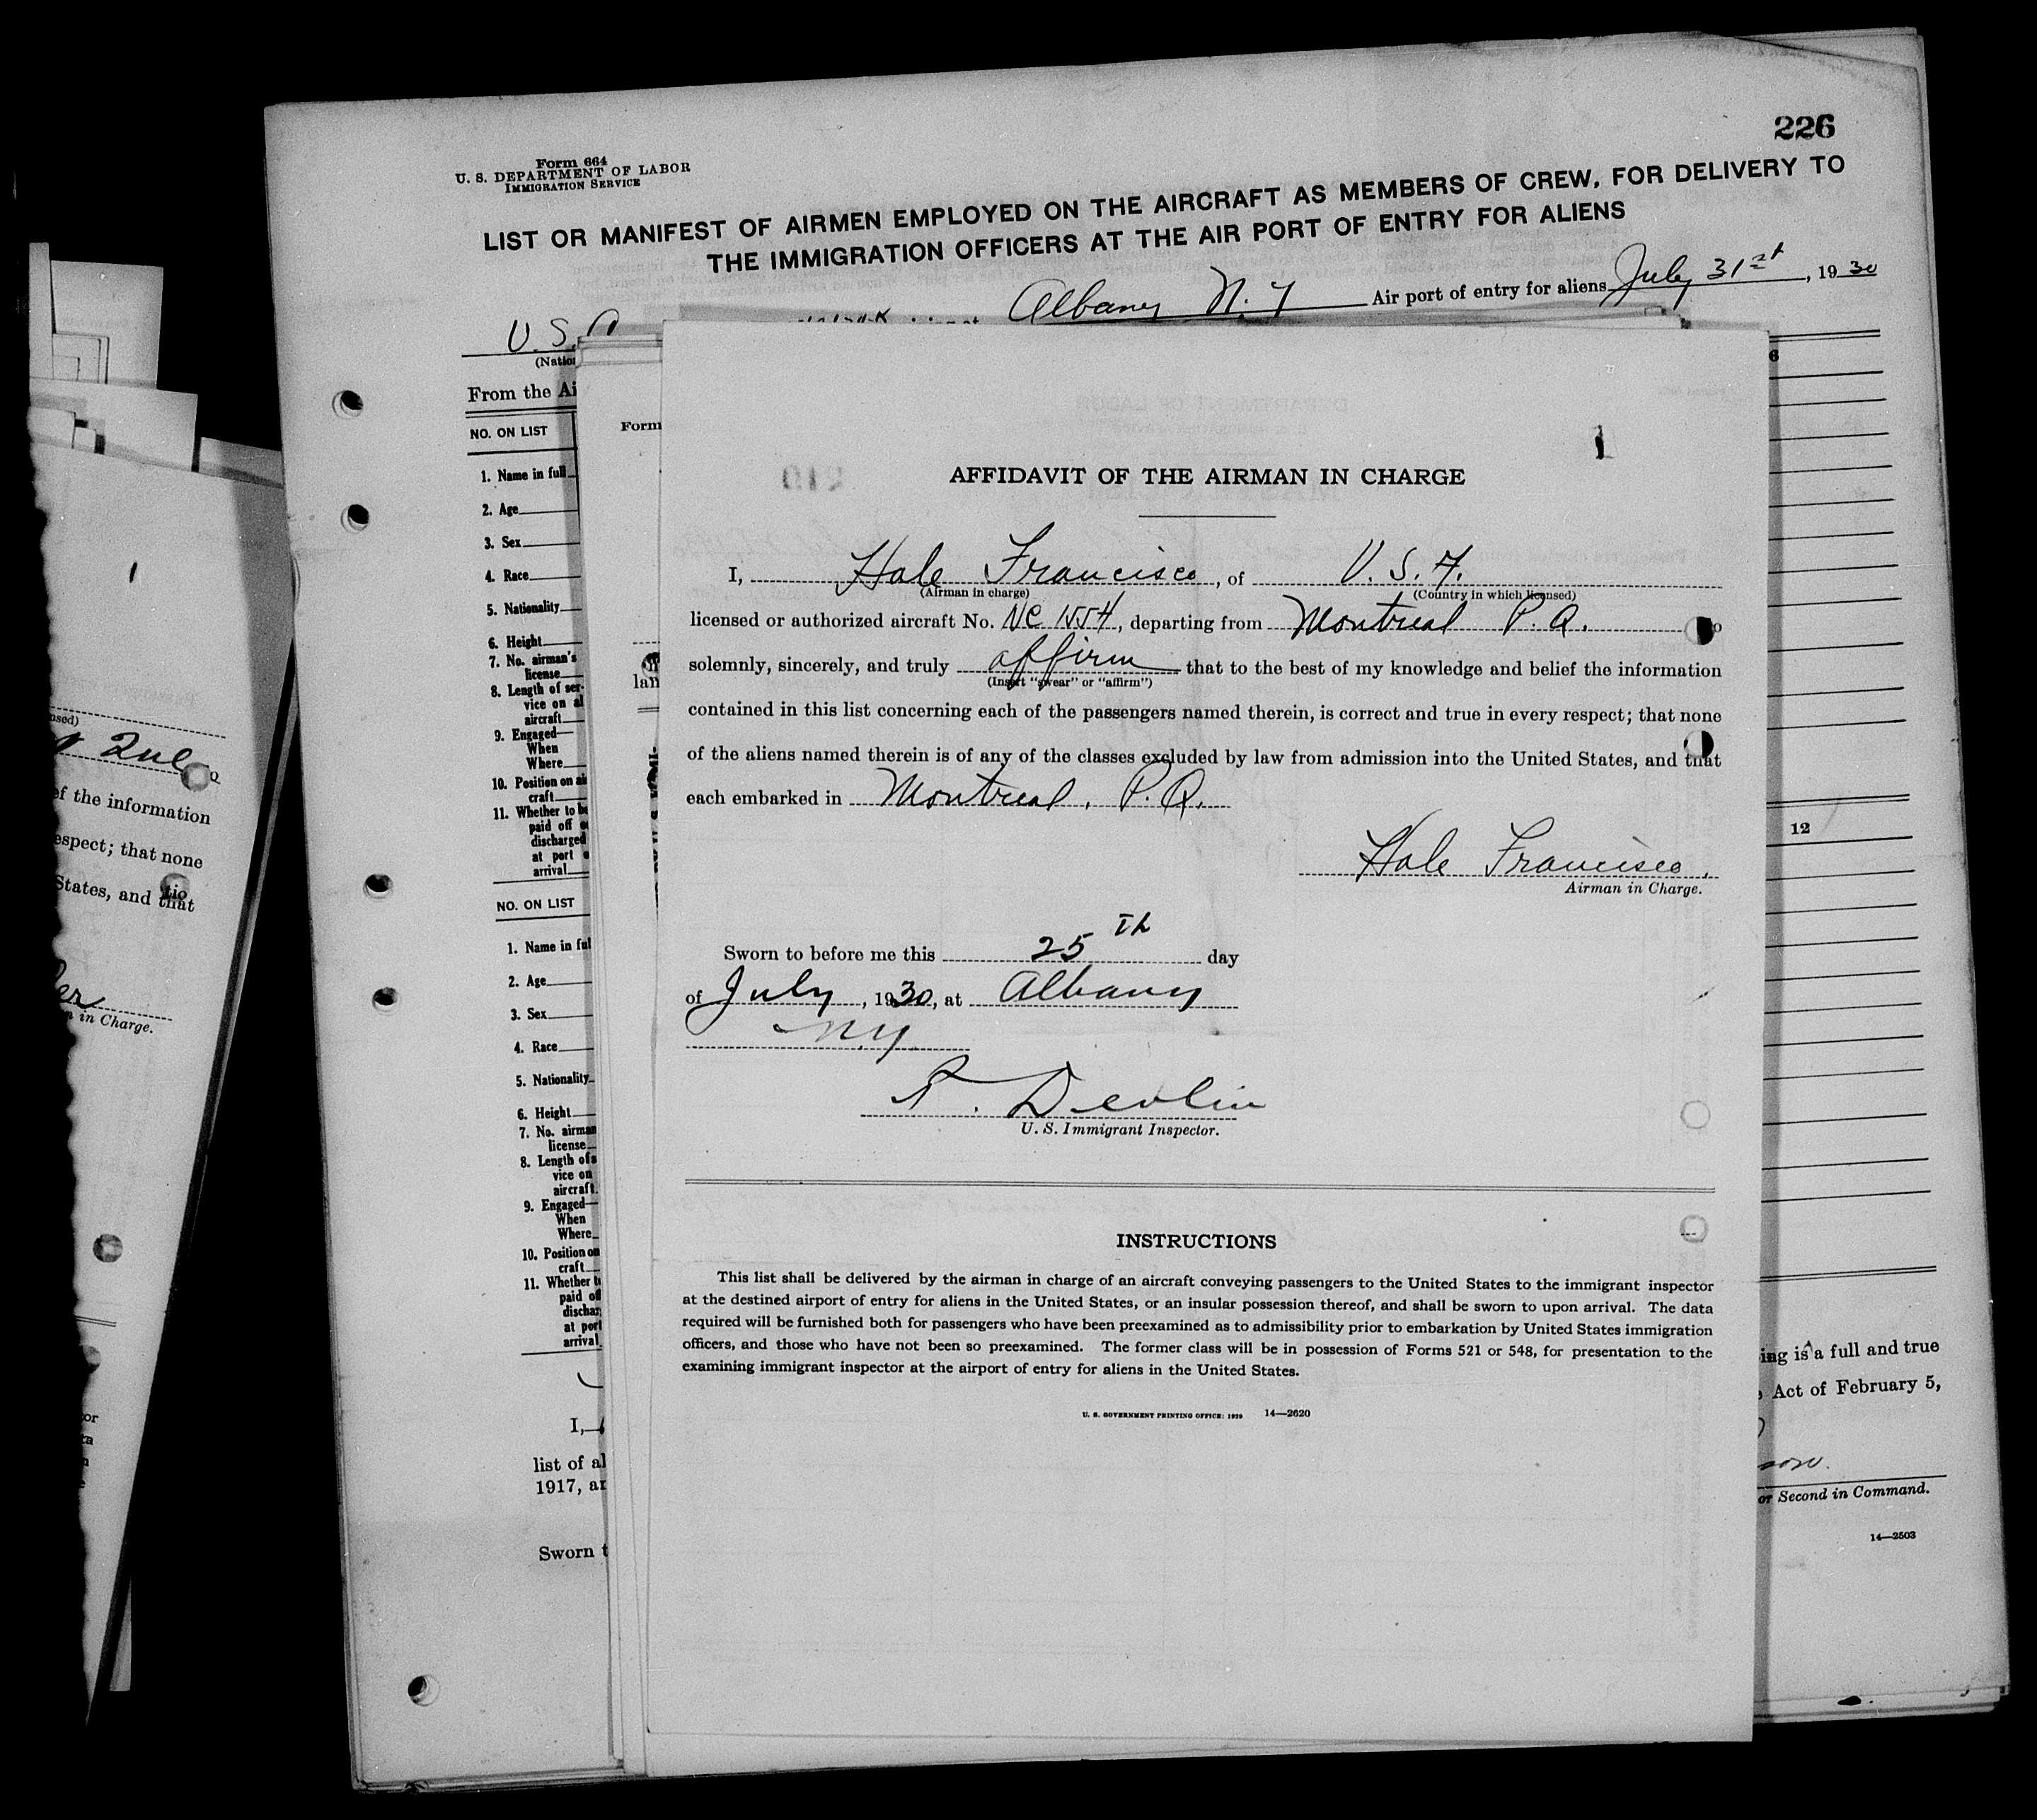 226
Form 664
U. S. DEPARTMENT OF LABOR
IMMIGRATION SERVICE
LIST OR MANIFEST OF AIRMEN EMPLOYED ON THE AIRCRAFT AS MEMBERS OF CREW, FOR DELIVERY TO
THE IMMIGRATION OFFICERS AT THE AIR PORT OF ENTRY FOR ALIENS
Albany N.Y Air port of entry for aliens July 31st, 1930
U. S. A
From the Ai
NO. ON LIST
1. Name in full
2. Age
3. Sex
4. Race
5. Nationality
6. Height
7. No. airman's
license
8. Length of ser-
vice on
aircraft
9. Engaged—
When
Where
10. Position on
craft
11. Whether to be
paid off
discharged
at port
arrival
NO. ON LIST
1. Name in ful
2. Age
3. Sex
4. Race
5. Nationality
6. Height
7. No. airman
license
8. Length of
vice on
aircraft
9. Engaged—
When
Where
10. Position on
craft
11. Whether
paid of
dischar
at port
arrival
I,
list of al
1917, ar
Sworn t
Form
lan
1
AFFIDAVIT OF THE AIRMAN IN CHARGE
I, Hale Francisco, of U. S. A.
(Airman in charge) (Country in which licensed)
licensed or authorized aircraft No. NC 1554, departing from Montreal P. Q.
solemnly, sincerely, and truly affirm that to the best of my knowledge and belief the information
(Insert "swear" or "affirm")
contained in this list concerning each of the passengers named therein, is correct and true in every respect; that none
of the aliens named therein is of any of the classes excluded by law from admission into the United States, and that
each embarked in Montreal, P. Q.
Hale Francisco,
Airman in Charge.
Sworn to before me this 25th day
of July, 1930, at Albany
N.Y.
R. Devlin
U. S. Immigrant Inspector.
INSTRUCTIONS
This list shall be delivered by the airman in charge of an aircraft conveying passengers to the United States to the immigrant inspector
at the destined airport of entry for aliens in the United States, or an insular possession thereof, and shall be sworn to upon arrival. The data
required will be furnished both for passengers who have been preexamined as to admissibility prior to embarkation by United States immigration
officers, and those who have not been so preexamined. The former class will be in possession of Forms 521 or 548, for presentation to the
examining immigrant inspector at the airport of entry for aliens in the United States.
U. S. GOVERNMENT PRINTING OFFICE: 1929 14—2620
6
12
ing is a full and true
Act of February 5,
or Second in Command.
14—2503
1
nsed)
Que
of the information
espect; that none
States, and that
in Charge.